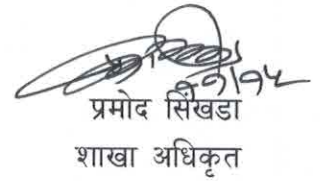 प्रमोद सिंखडा
शाखा अधिकृत